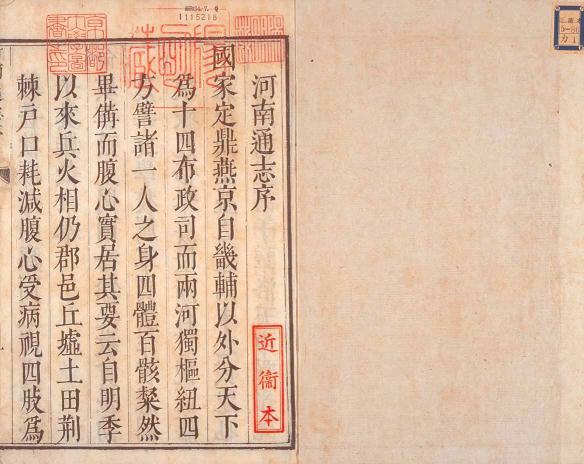 河南通志序
國家定鼎燕京自畿輔以外分天下
為十四布政司而兩河獨樞紐四
方譬諸一人之身四體百骸粲然
畢備而腹心實居其要云自明季
以來兵火相仍郡邑丘墟土田荆
棘戶口耗減腹心受病視四肢為
近衞本
1115218